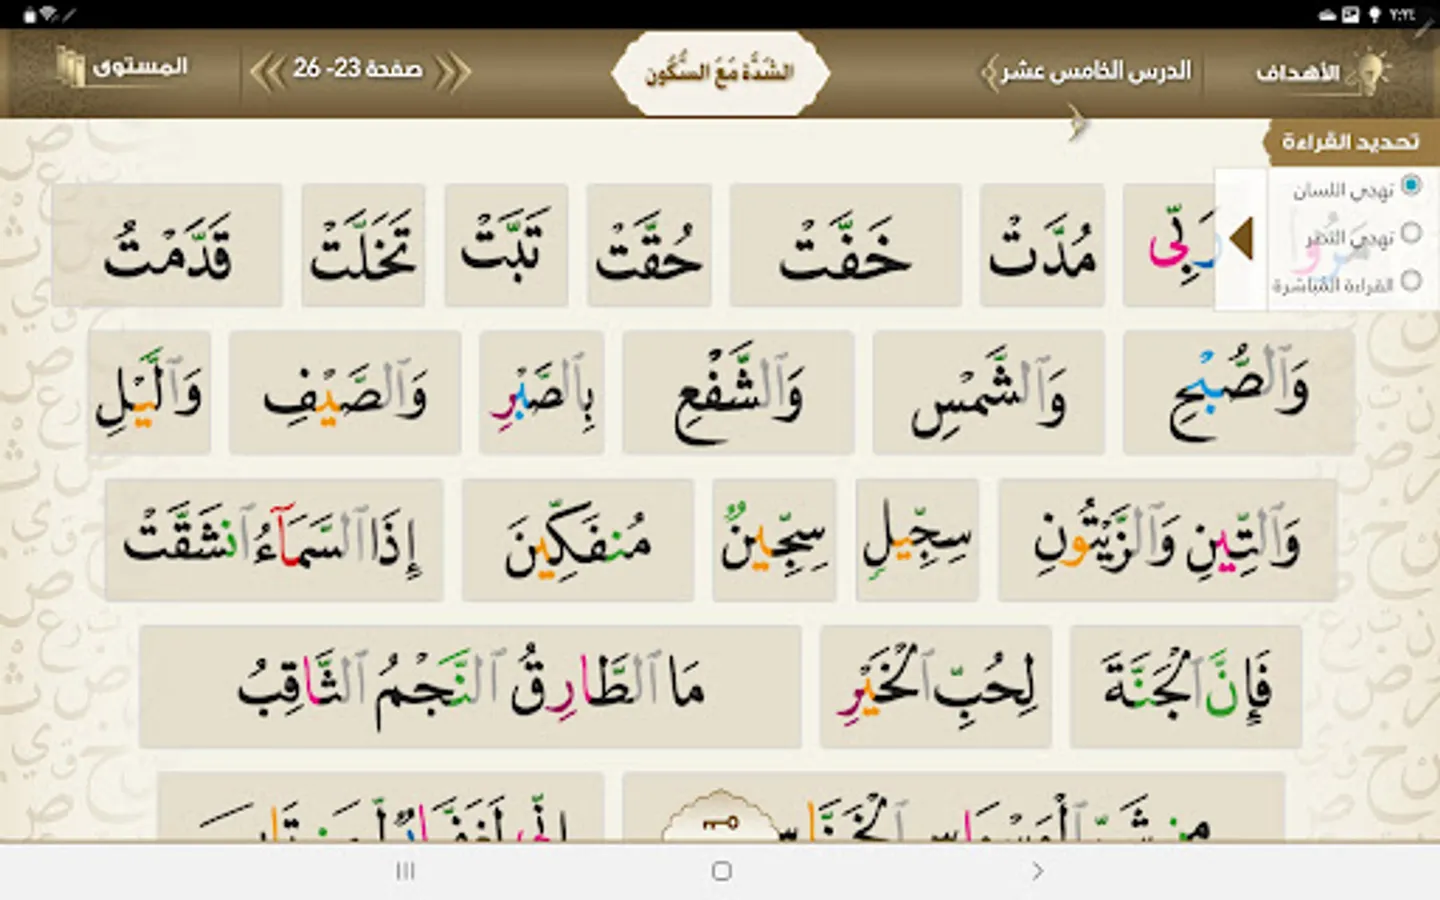 ٢:٢٤
الأهداف
الدرس الخامس عشر
الشَّدَّة مَعَ السُّكُون
صفحة 23- 26
المستوى
تحديد القراءة
تهجي اللسان
تهجي النظر
القراءة المباشرة
رَبِّى مُدَّتْ خَفَّتْ حُقَّتْ تَبَّتْ تَخَلَّتْ قَدَّمْتُ
وَٱلصُّبْحِ وَٱلشَّمْسِ وَٱلشَّفْعِ بِٱلصَّبْرِ وَٱلصَّيْفِ وَٱلَّيْلِ
وَٱلتِّينِ وَٱلزَّيْتُونِ سِجِّيلٍ سِجِّينٌ مُنفَكِّينَ إِذَا ٱلسَّمَآءُ ٱنشَقَّتْ
فَإِنَّ ٱلْجَنَّةَ لِحُبِّ ٱلْخَيْرِ مَا ٱلطَّارِقُ ٱلنَّجْمُ ٱلثَّاقِبُ
مِن شَرِّ ٱلْوَسْوَاسِ ٱلْخَنَّاسِ إِنِّى لَغَفَّارٌ لِّمَن تَابَ